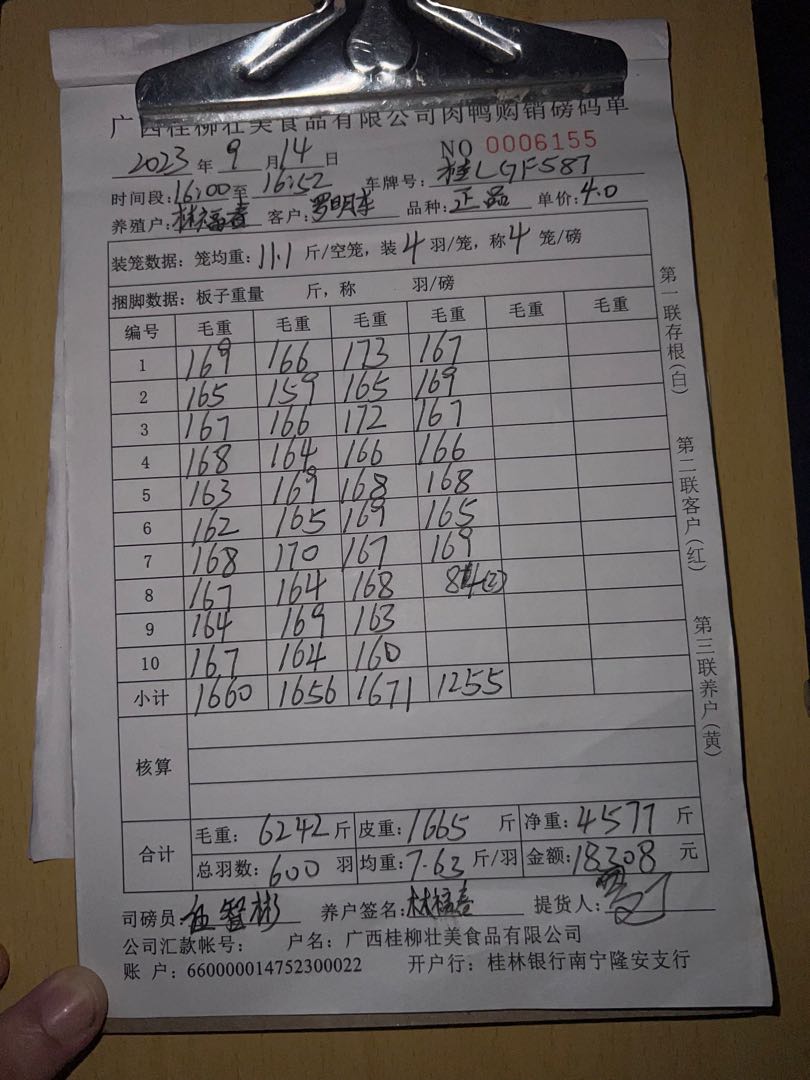 广西桂柳壮美食品有限公司肉鸭购销磅码单
2023 年 9 月 14 日 NO 0006155
时间段: 16:00 至 16:52 车牌号: 桂LGF587
养殖户: 林福春 客户: 罗明东 品种: 正品 单价: 4.0
装笼数据: 笼均重: 11.1 斤/空笼, 装 4 羽/笼, 称 4 笼/磅
捆脚数据: 板子重量 斤, 称 羽/磅
编号 毛重 毛重 毛重 毛重 毛重 毛重
1 169 166 173 167
2 165 159 165 169
3 167 166 172 167
4 168 164 166 166
5 163 169 168 168
6 162 165 169 165
7 168 170 167 169
8 167 164 168 84(2)
9 164 169 163
10 167 164 160
小计 1660 1656 1671 1255
核算
合计 毛重: 6242 斤 皮重: 1665 斤 净重: 4577 斤
总羽数: 600 羽 均重: 7.63 斤/羽 金额: 18308 元
司磅员: 智彬 养户签名: 林福春 提货人:
公司汇款帐号: 户名: 广西桂柳壮美食品有限公司
账 户: 660000014752300022 开户行: 桂林银行南宁隆安支行
第一联存根(白)
第二联客户(红)
第三联养户(黄)